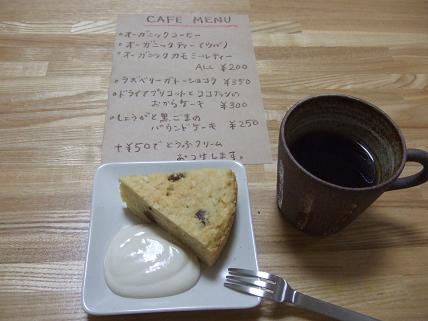 CAFE MENU
○オーガニックコーヒー
○オーガニックティー(リバ)
○オーガニックカモミールティー
ALL ¥200
○ラズベリーガトーショコラ ¥350
○ドライアプリコットとココナッツの
おからケーキ ¥300
○しょうがと黒ごまの
パウンドケーキ ¥250
+¥50でとうふクリーム
おつけします。